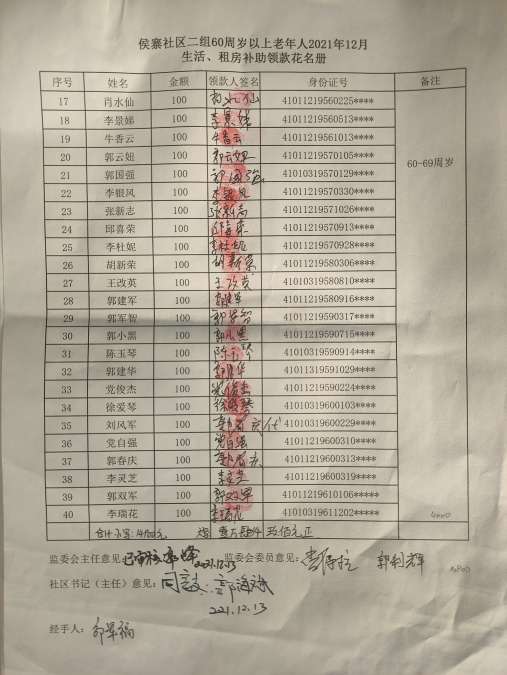 侯寨社区二组60周岁以上老年人2021年12月
生活、租房补助领款花名册
序号 姓名 金额 领款人签名 身份证号 备注
17 肖水仙 100 肖水仙 41011219560225****
18 李景娣 100 李景娣 41011219560513****
19 牛香云 100 牛香云 41011219561013****
20 郭云妞 100 郭云妞 41011219570105**** 60-69周岁
21 郭国强 100 郭国强 41010319570129****
22 李银风 100 李银风 41011219570330****
23 张新志 100 张新志 41011219571026****
24 邱喜荣 100 邱喜荣 41011219570913****
25 李杜妮 100 李杜妮 41011219570928****
26 胡新荣 100 胡新荣 41011219580306****
27 王改英 100 王改英 41010319580810****
28 郭建军 100 郭建军 41011219580916****
29 郭军智 100 郭军智 41011219590317****
30 郭小黑 100 郭小黑 41011219590715****
31 陈玉琴 100 陈玉琴 41010319590914****
32 郭建华 100 郭建华 41011319591029****
33 党俊杰 100 党俊杰 41011219590224****
34 徐爱琴 100 徐爱琴 41010319600103****
35 刘风军 100 41010319600229****
36 党自强 100 党自强 41011219600310****
37 郭春庆 100 41011219600313****
38 李灵芝 100 李灵芝 41011219600319****
39 郭双军 100 郭双军 41011219610106*****
40 李瑞花 100 李瑞花 41010319611202*****
监委会主任意见： 2021.12.13 监委会委员意见： 郭利辉
社区书记（主任）意见：同意 郭海斌
2021.12.13
经手人：郭军福